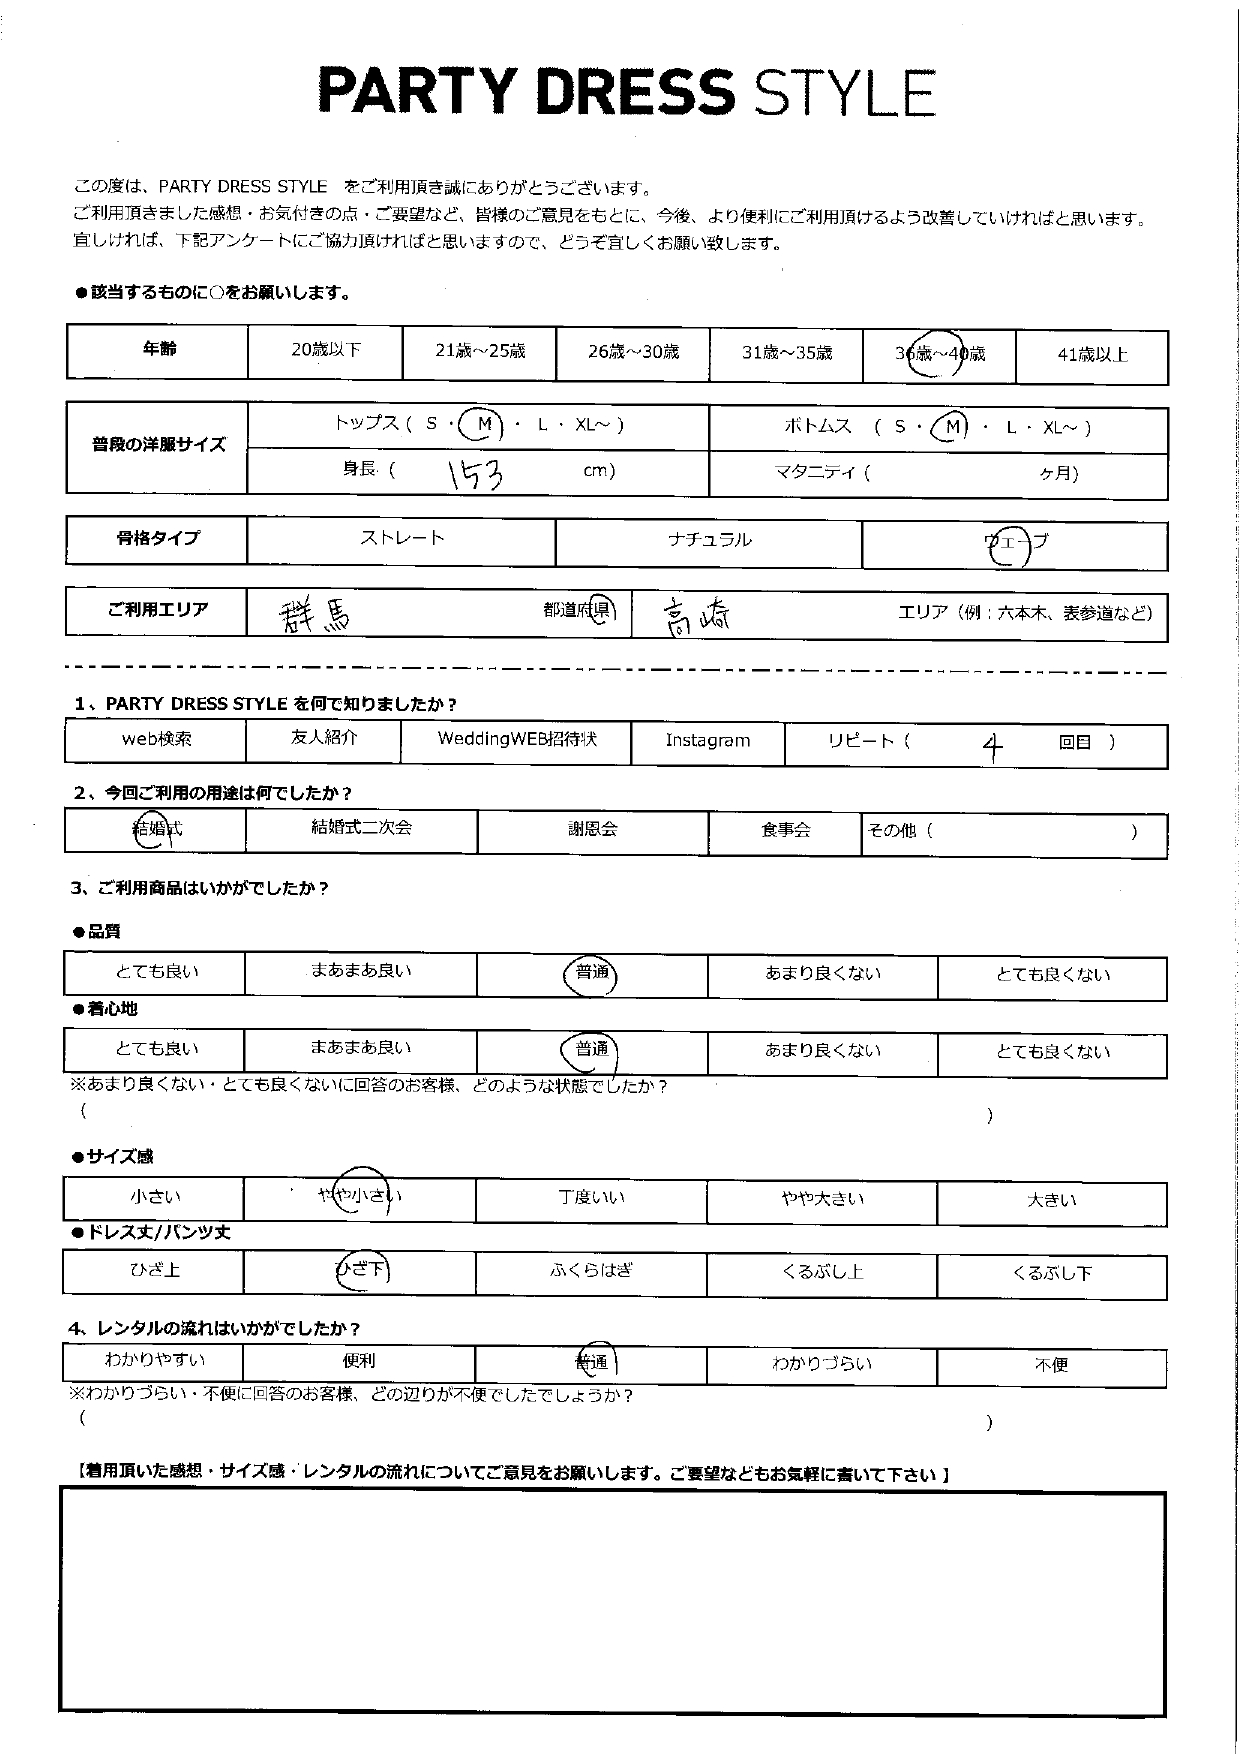 PARTY DRESS STYLE
この度は、PARTY DRESS STYLE をご利用頂き誠にありがとうございます。
ご利用頂きました感想・お気付きの点・ご要望など、皆様のご意見をもとに、今後、より便利にご利用頂けるよう改善していければと思います。
宜しければ、下記アンケートにご協力頂ければと思いますので、どうぞ宜しくお願い致します。
●該当するものに○をお願いします。
年齢 20歳以下 21歳～25歳 26歳～30歳 31歳～35歳 36歳～40歳 41歳以上
普段の洋服サイズ
トップス ( S ・ M ・ L ・ XL～ ) ボトムス ( S ・ M ・ L ・ XL～ )
身長 ( 153 cm) マタニティ ( ヶ月)
骨格タイプ ストレート ナチュラル ウェーブ
ご利用エリア 群馬 都道府県 高崎 エリア（例：六本木、表参道など）
1、PARTY DRESS STYLE を何で知りましたか？
web検索 友人紹介 WeddingWEB招待状 Instagram リピート ( 4 回目 )
2、今回ご利用の用途は何でしたか？
結婚式 結婚式二次会 謝恩会 食事会 その他 ( )
3、ご利用商品はいかがでしたか？
●品質
とても良い まあまあ良い 普通 あまり良くない とても良くない
●着心地
とても良い まあまあ良い 普通 あまり良くない とても良くない
※あまり良くない・とても良くないに回答のお客様、どのような状態でしたか？
( )
●サイズ感
小さい やや小さい 丁度いい やや大きい 大きい
●ドレス丈/パンツ丈
ひざ上 ひざ下 ふくらはぎ くるぶし上 くるぶし下
4、レンタルの流れはいかがでしたか？
わかりやすい 便利 普通 わかりづらい 不便
※わかりづらい・不便に回答のお客様、どの辺りが不便でしたでしょうか？
( )
【着用頂いた感想・サイズ感・レンタルの流れについてご意見をお願いします。ご要望などもお気軽に書いて下さい】